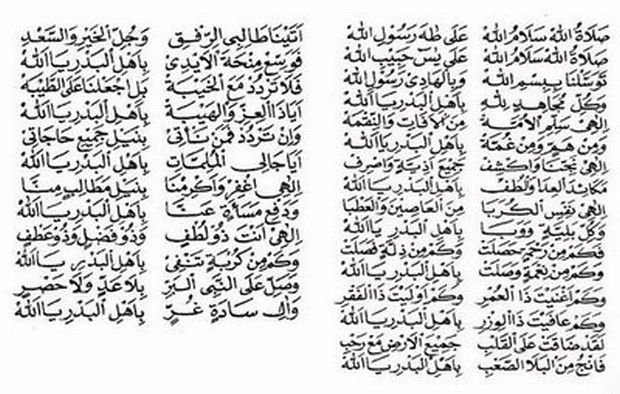 صَلَاةُ اللهْ سَلَامُ اللهْ عَلَى طٰهَ رَسُوْلِ اللهْ
صَلَاةُ اللهْ سَلَامُ اللهْ عَلَى يٰسٓ حَبِيْبِ اللهْ
تَوَسَّلْنَا بِبِسْمِ اللهْ وَبِالْهَادِى رَسُوْلِ اللهْ
وَكُلِّ مُجَاهِدٍ لِلّٰهْ بِاَهْلِ الْبَدْرِ يَا اَللهْ
اِلٰهِىْ سَلِّمِ الْاُمَّةْ مِنَ الْاٰفَاتِ وَالنِّقْمَةْ
وَمِنْ هَمٍّ وَمِنْ غُمَّةْ بِاَهْلِ الْبَدْرِ يَا اَللهْ
اِلٰهِىْ نَجِّنَا وَاكْشِفْ جَمِيْعَ اَذِيَّةٍ وَاصْرِفْ
مَكَائِدَ الْعِدَا وَالْطُفْ بِاَهْلِ الْبَدْرِ يَا اَللهْ
اِلٰهِىْ نَفِّسِ الْكُرَبَا مِنَ الْعَاصِيْنَ وَالْعَطْبَا
وَكُلِّ بَلِيَّةٍ وَوَبَا بِاَهْلِ الْبَدْرِ يَا اَللهْ
فَكَمْ مِنْ رَحْمَةٍ حَصَلَتْ وَكَمْ مِنْ ذِلَّةٍ فَصَلَتْ
وَكَمْ مِنْ نِعْمَةٍ وَصَلَتْ بِاَهْلِ الْبَدْرِ يَا اَللهْ
وَكَمْ اَغْنَيْتَ ذَا الْعُمْرِ وَكَمْ اَوْلَيْتَ ذَا الْفَقْرِ
وَكَمْ عَافَيْتَ ذَا الْوِزْرِ بِاَهْلِ الْبَدْرِ يَا اَللهْ
لَقَدْ ضَاقَتْ عَلَى الْقَلْبِ جَمِيْعُ الْاَرْضِ مَعْ رَحْبِ
فَانْجُ مِنَ الْبَلَا الصَّعْبِ بِاَهْلِ الْبَدْرِ يَا اَللهْ
اَتَيْنَا طَالِبِى الرِّفْقِ وَجُلِّ الْخَيْرِ وَالسَّعْدِ
فَوَسِّعْ مِنْحَةَ الْاَيْدِىْ بِاَهْلِ الْبَدْرِ يَا اَللهْ
فَلَا تَرْدُدْ مَعَ الْخَيْبَةْ بَلِ اجْعَلْنَا عَلَى الطَّيْبَةْ
اَيَا ذَا الْعِزِّ وَالْهَيْبَةْ بِاَهْلِ الْبَدْرِ يَا اَللهْ
وَاِنْ تَرْدُدْ فَمَنْ نَأْتِىْ بِنَيْلِ جَمِيْعِ حَاجَاتِىْ
اَيَا جَالِى الْمُلِمَّاتِ بِاَهْلِ الْبَدْرِ يَا اَللهْ
اِلٰهِى اغْفِرْ وَاَكْرِمْنَا بِنَيْلِ مَطَالِبٍ مِنَّا
وَدَفْعِ مَسَاءَةٍ عَنَّا بِاَهْلِ الْبَدْرِ يَا اَللهْ
اِلٰهِىْ اَنْتَ ذُوْ لُطْفٍ وَذُوْ فَضْلٍ وَذُوْ عَطْفٍ
وَكَمْ مِنْ كُرْبَةٍ تَنْفِىْ بِاَهْلِ الْبَدْرِ يَا اَللهْ
وَصَلِّ عَلَى النَّبِى الْبَرِّ بِلَا عَدٍّ وَلَا حَصْرٍ
وَاٰلِ سَادَةٍ غُرٍّ بِاَهْلِ الْبَدْرِ يَا اَللهْ